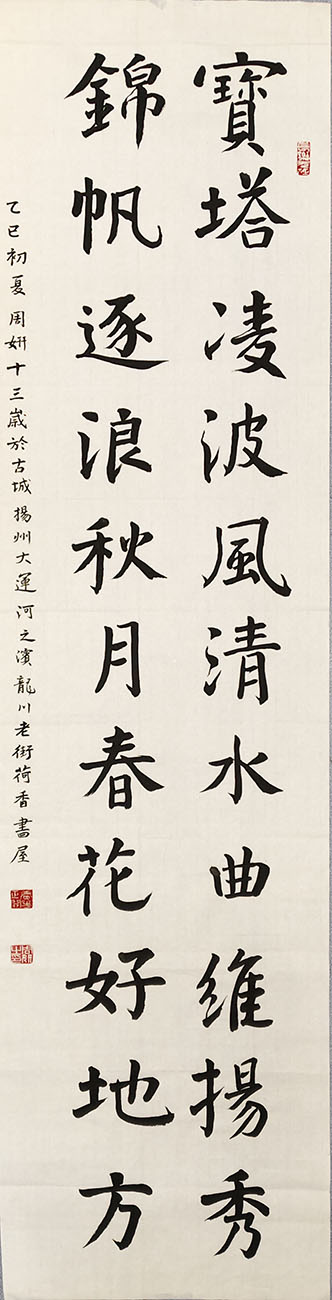 寶塔凌波風清水曲維揚秀
錦帆逐浪秋月春花好地方
乙巳初夏周妍十三歲於古城揚州大運河之濱龍川老街荷香書屋